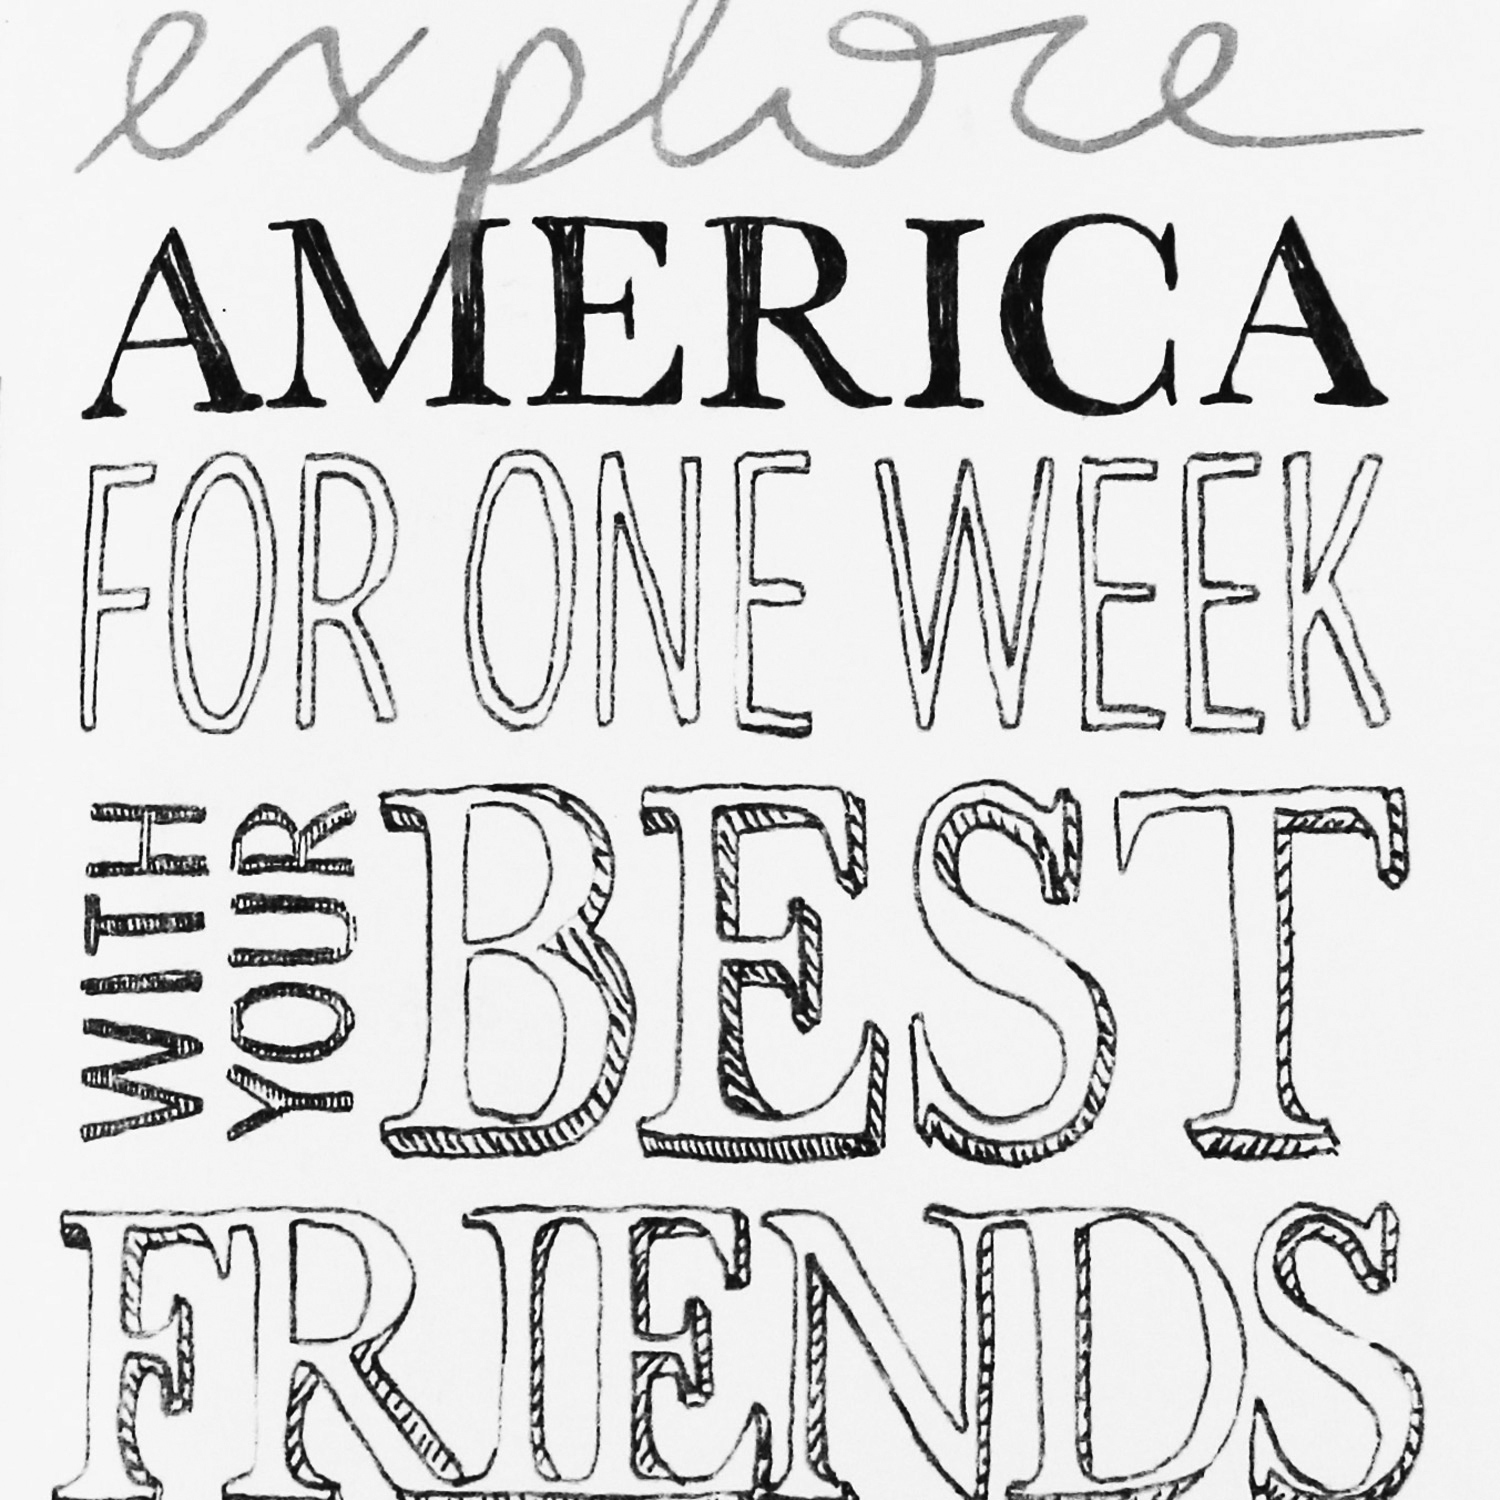 explore
AMERICA
FOR ONE WEEK
WITH
YOUR
BEST
FRIENDS